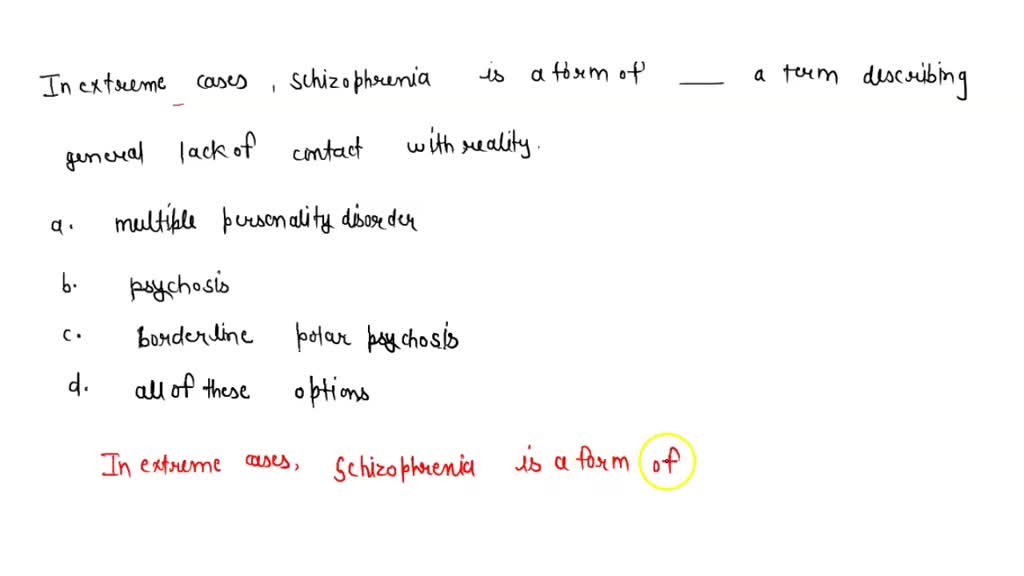 In extreme cases, schizophrenia is a form of ___ a term describing
general lack of contact with reality.
a. multiple personality disorder
b. psychosis
c. borderline polar psychosis
d. all of these options
In extreme cases, schizophrenia is a form of